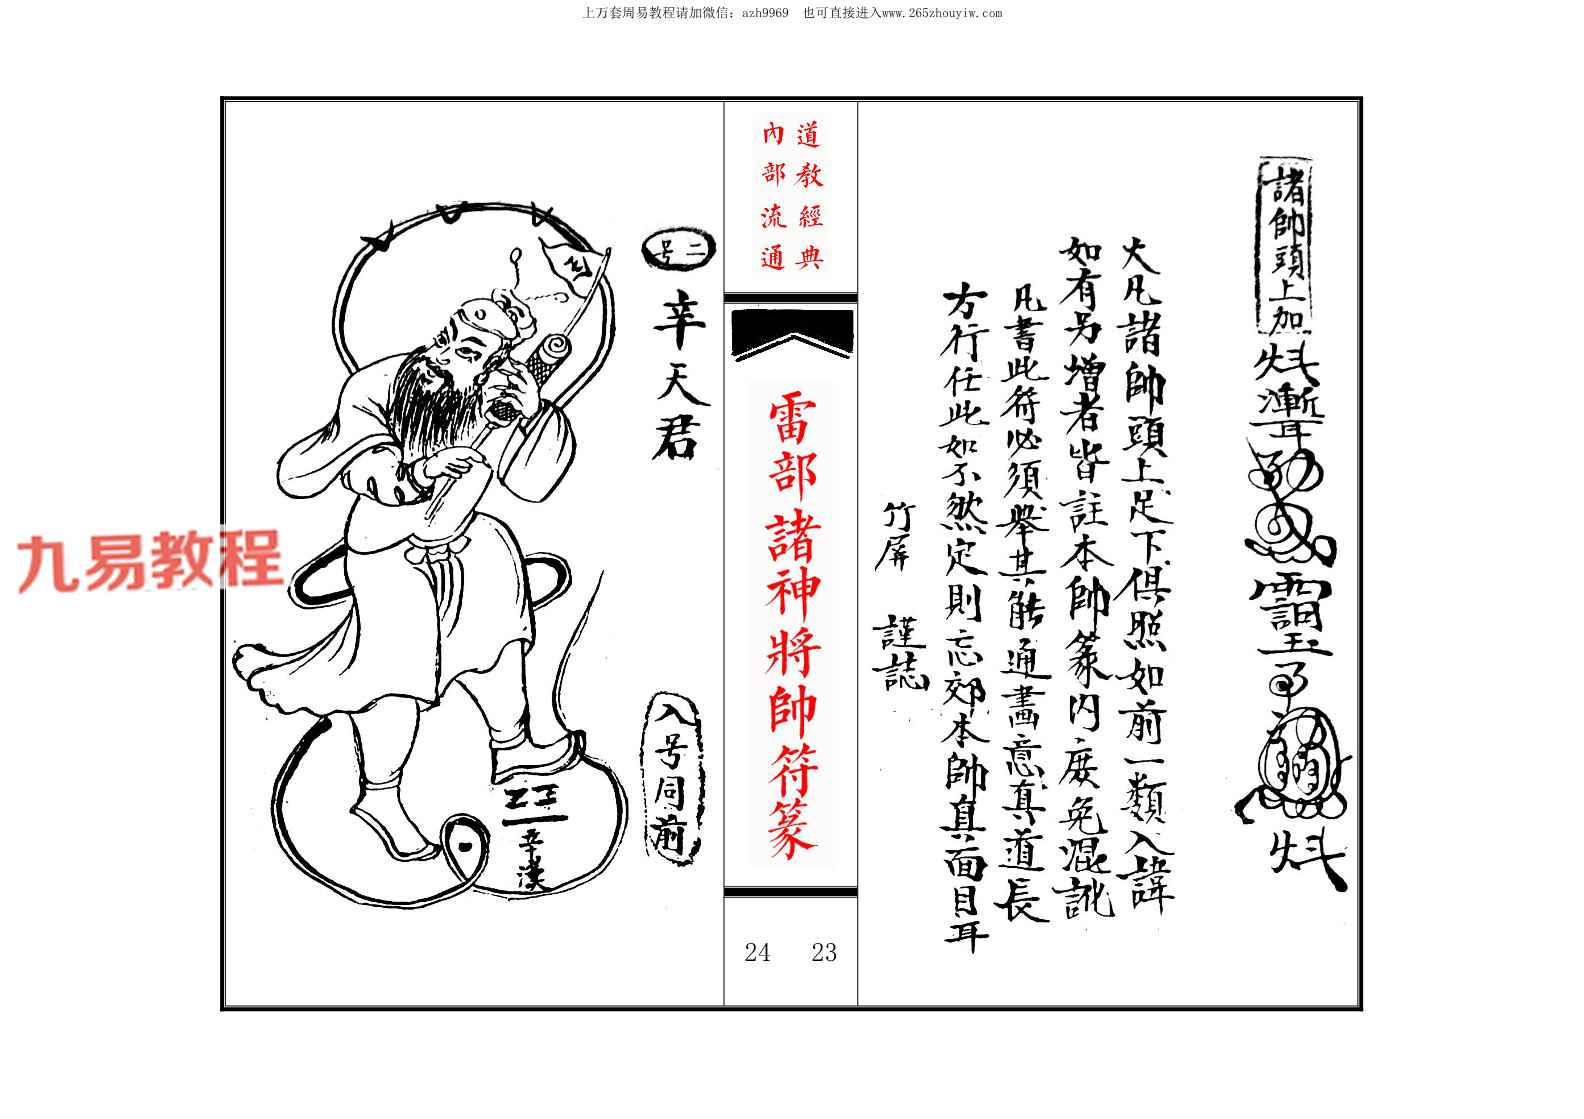 上万套周易教程请加微信：azh9969　也可直接进入www.265zhouyiw.com
諸帥頭上加
大凡諸帥頭上足下俱照如前一類入諱
如有另增者皆註本帥篆内庶免混訛
凡書此符必須舉其能通畵意真道長
方行任此如不然定則忘郊本帥真面目耳
竹屏　謹誌
道教經典
內部流通
雷部諸神將帥符篆
24 23
二号
辛天君
入号同前
辛漢
九易教程